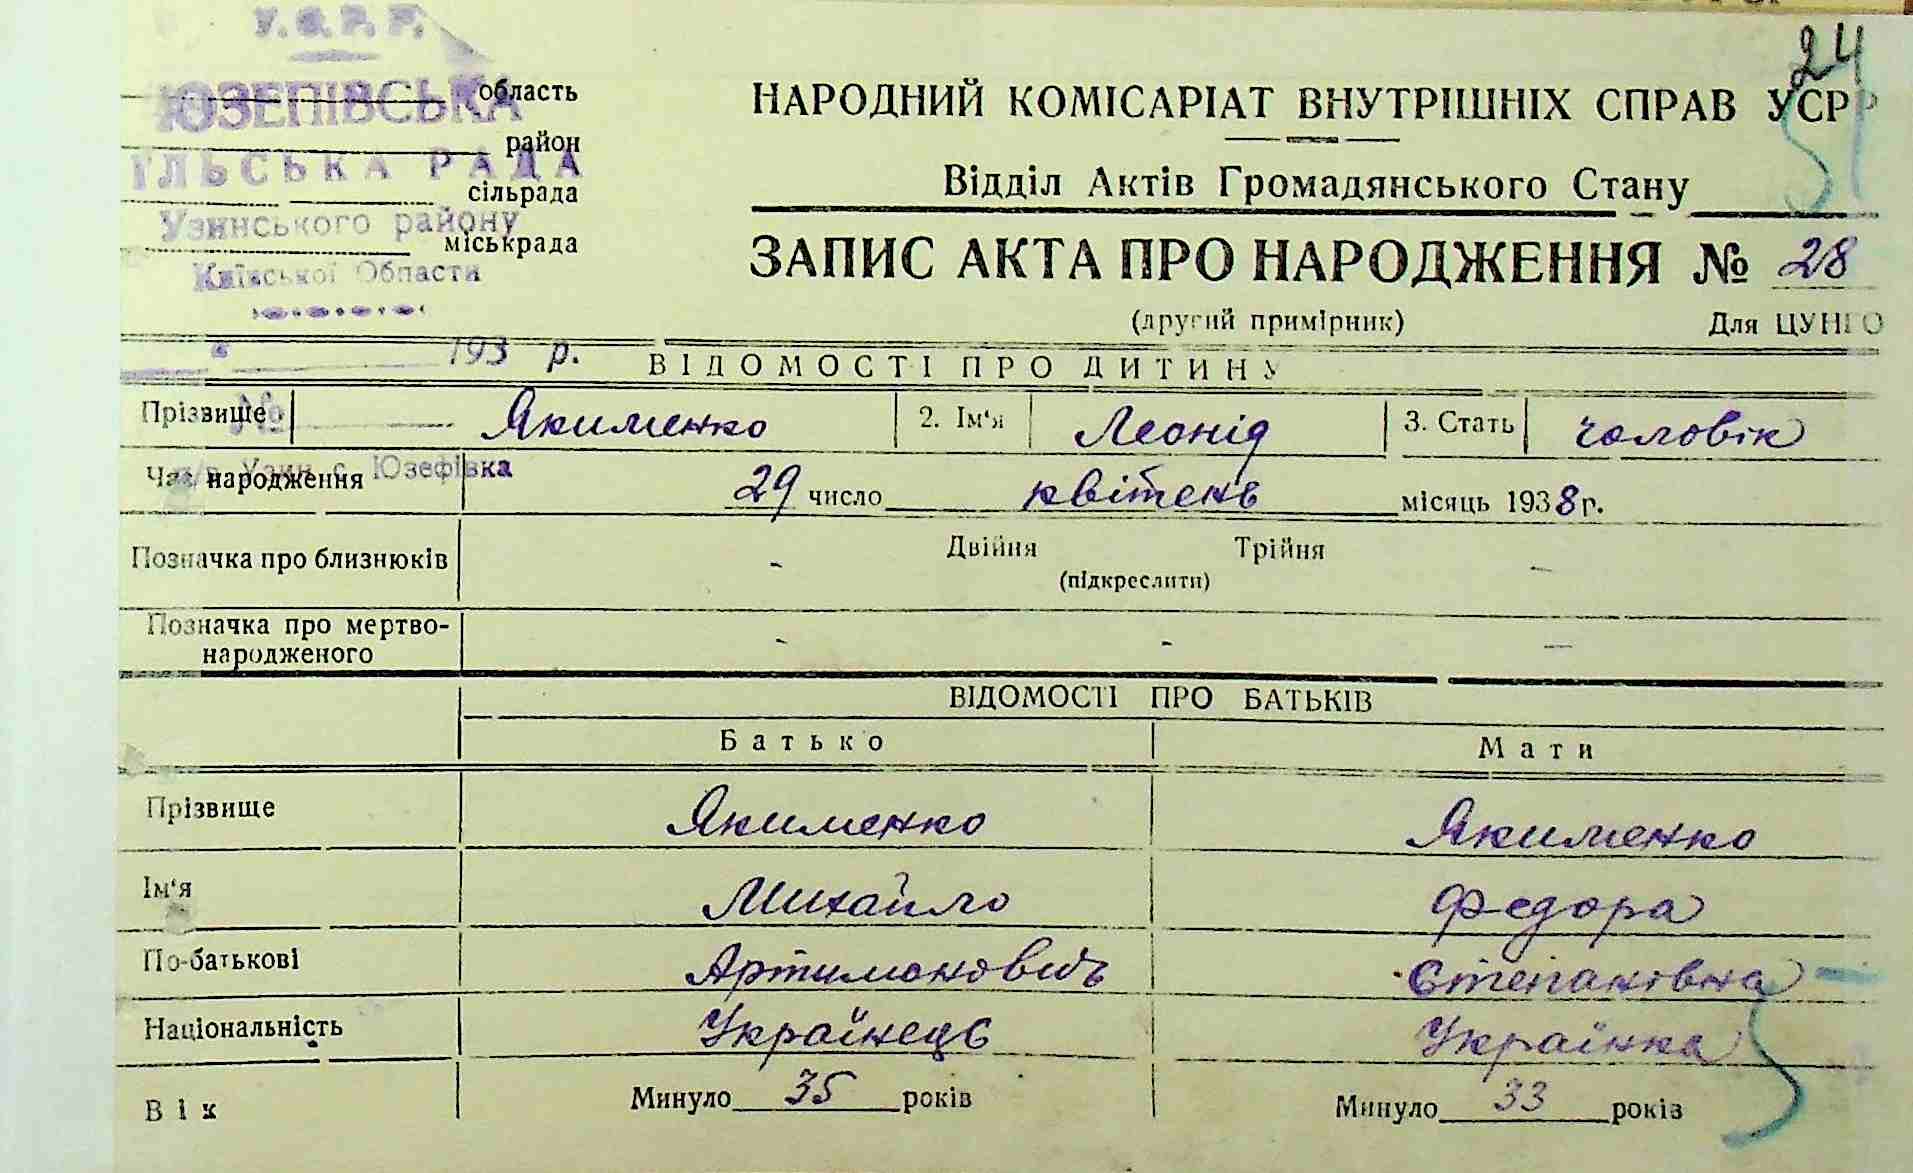 У.С.Р.Р.
ЮЗЕПІВСЬКА
область
район
СІЛЬСЬКА РАДА
сільрада
Узинського району
міськрада
Київської Області
193 р.
№
п/в Узин с. Юзефівка
24
НАРОДНИЙ КОМІСАРІАТ ВНУТРІШНІХ СПРАВ УСРР
Відділ Актів Громадянського Стану
ЗАПИС АКТА ПРО НАРОДЖЕННЯ № 28
(другий примірник) Для ЦУНГО
ВІДОМОСТІ ПРО ДИТИНУ
Прізвище Якименко 2. Ім'я Леонід 3. Стать чоловік
Час народження 29 число квітень місяць 1938 р.
Позначка про близнюків - Двійня Трійня —
(підкреслити)
Позначка про мертво-
народженого - - —
ВІДОМОСТІ ПРО БАТЬКІВ
Батько Мати
Прізвище Якименко Якименко
Ім'я Михайло Федора
По-батькові Артимонович Степанівна
Національність Українець Українка
Вік Минуло 35 років Минуло 33 років